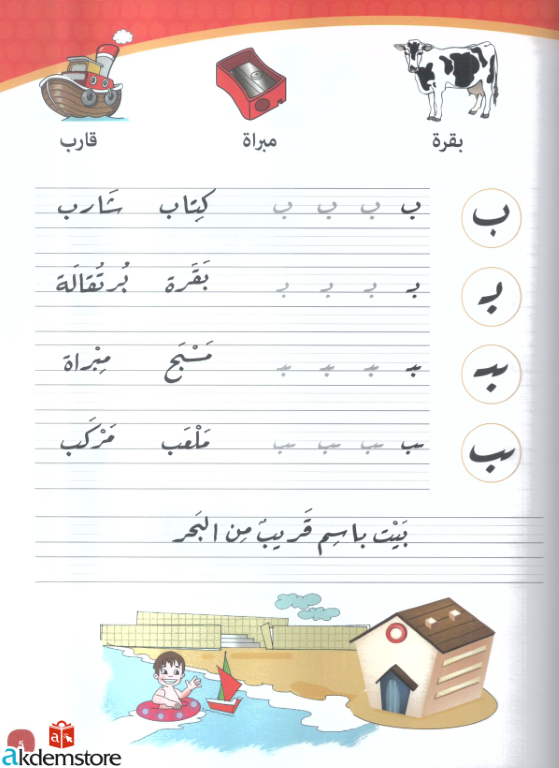 بقرة مبراة قارب
ب ب ب ب ب كِتاب شَارب
بـ بـ بـ بـ بـ بَقَرة بُرتُقالَة
ـبـ ـبـ ـبـ ـبـ ـبـ مَسْبَح مِبْراة
ـب ـب ـب ـب ـب مَلْعَب مَرْكَب
بَيْت باسِم قَريبٌ مِن البَحر
a
akdemstore